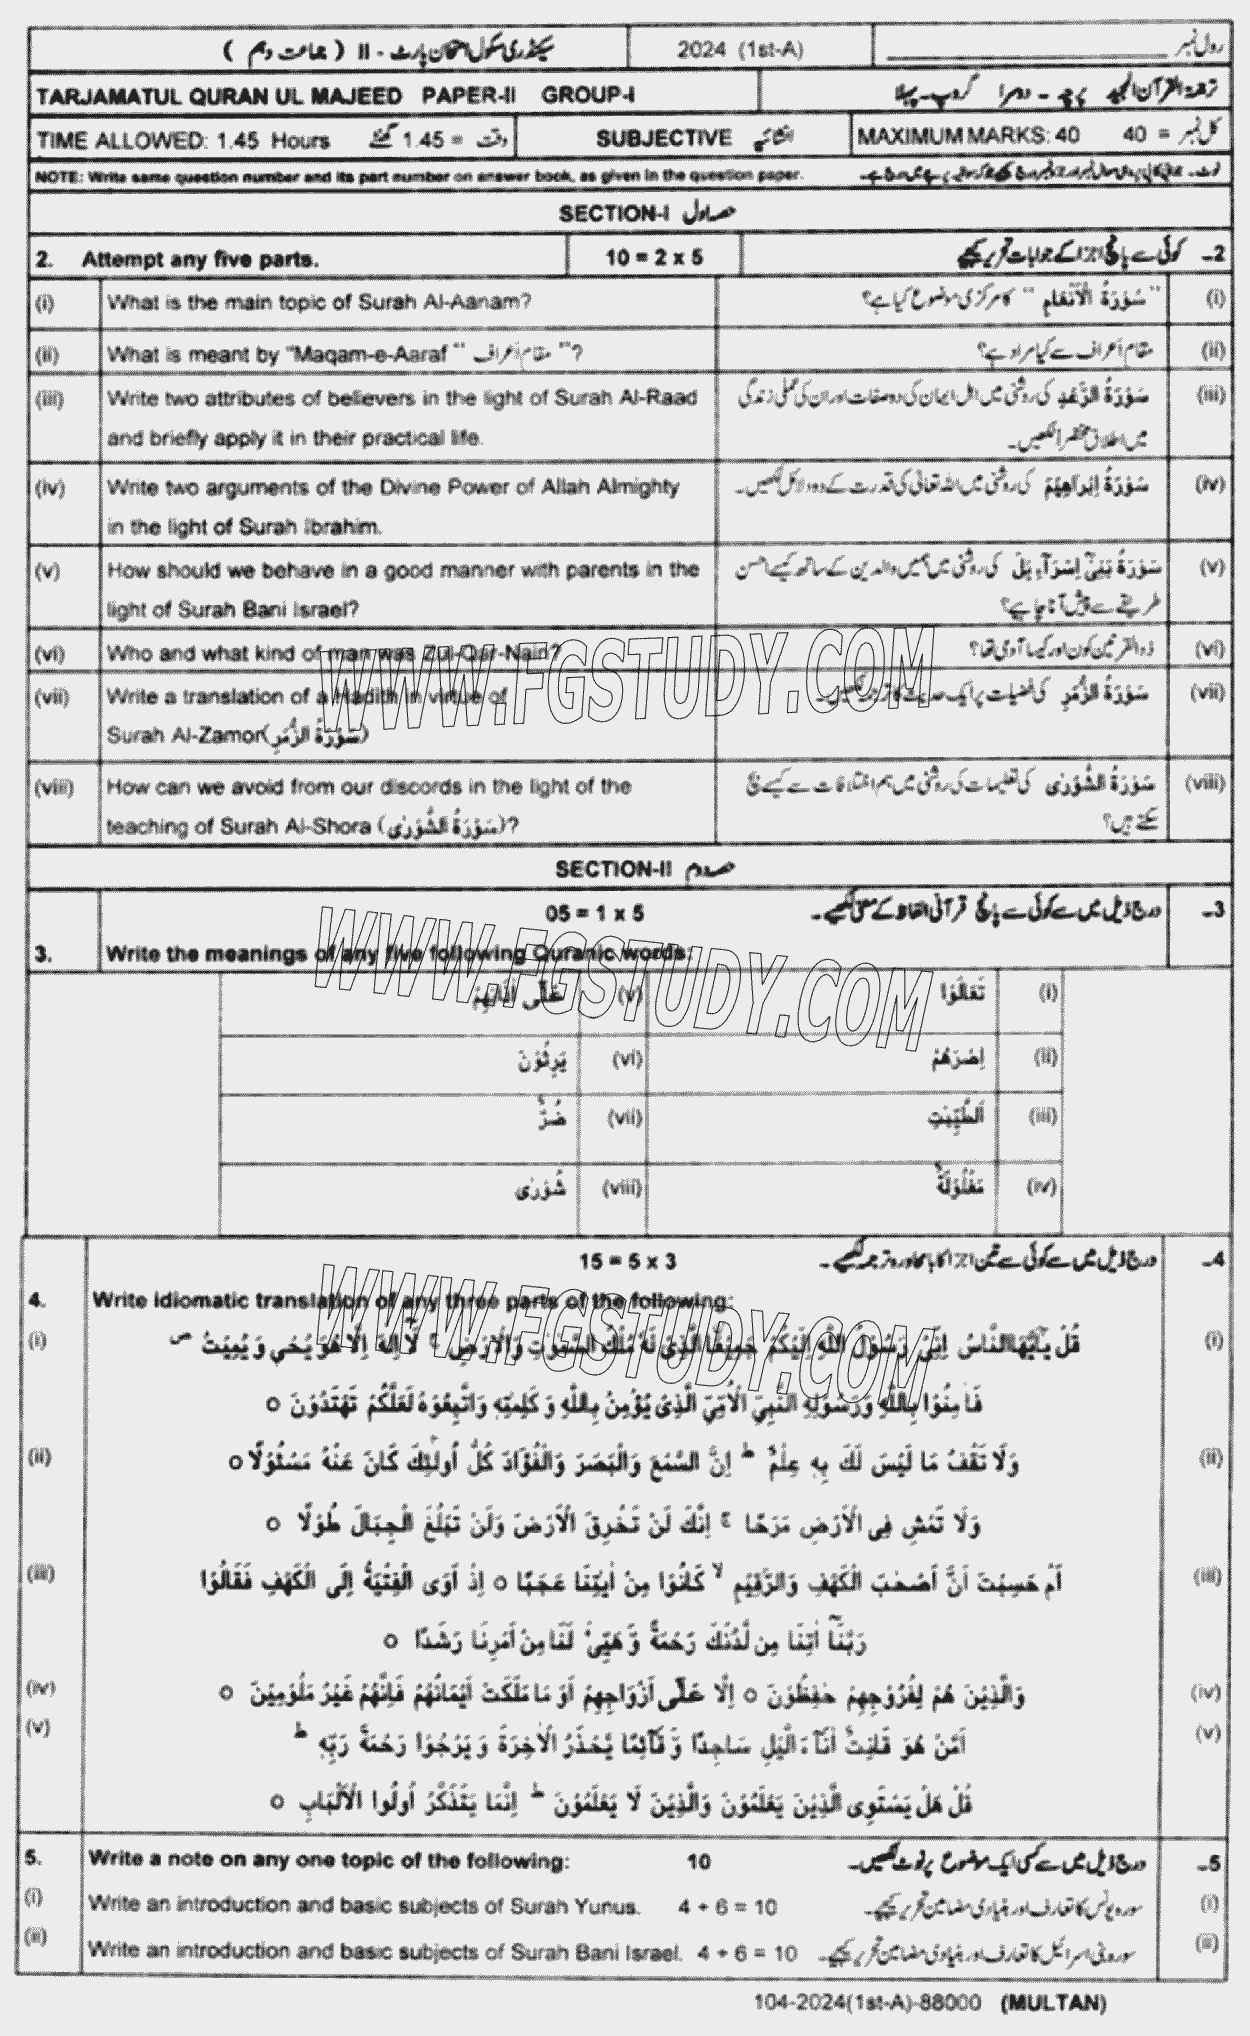 سیکنڈری سکول امتحان پارٹ - II ( جماعت دہم )
2024 (1st-A)
رول نمبر
TARJAMATUL QURAN UL MAJEED PAPER-II GROUP-I
ترجمۃ القرآن المجید پرچہ - دوسرا گروپ - پہلا
TIME ALLOWED: 1.45 Hours وقت = 1.45 گھنٹے
SUBJECTIVE انشائیہ
MAXIMUM MARKS: 40 کل نمبر = 40
NOTE: Write same question number and its part number on answer book, as given in the question paper.
SECTION-I حصہ اول
2. Attempt any five parts. 10 = 2 x 5 2۔ کوئی سے پانچ اجزا کے جوابات تحریر کیجیے
(i) What is the main topic of Surah Al-Aanam? (i) "سُوْرَةُ الْاَنْعَام" کا مرکزی موضوع کیا ہے؟
(ii) What is meant by "Maqam-e-Aaraf " مقام اعراف "? (ii) مقام اعراف سے کیا مراد ہے؟
(iii) Write two attributes of believers in the light of Surah Al-Raad (iii) سُوْرَةُ الرَّعْدِ کی روشنی میں اہل ایمان کی دو صفات اور ان کی عملی زندگی
and briefly apply it in their practical life. میں اطلاق مختصراً لکھیں۔
(iv) Write two arguments of the Divine Power of Allah Almighty (iv) سُوْرَةُ اِبْرَاهِيْمَ کی روشنی میں اللہ تعالیٰ کی قدرت کے دو دلائل لکھیں۔
in the light of Surah Ibrahim.
(v) How should we behave in a good manner with parents in the (v) سُوْرَةُ بَنِیْٓ اِسْرَآءِیْلَ کی روشنی میں ہمیں والدین کے ساتھ کیسے احسن
light of Surah Bani Israel? طریقے سے پیش آنا چاہیے؟
(vi) Who and what kind of man was Zul-Qar-Nain? (vi) ذوالقرنین کون اور کیسا آدمی تھا؟
(vii) Write a translation of a Hadith in virtue of (vii) سُوْرَةُ الزُّمَرِ کی فضیلت پر ایک حدیث کا ترجمہ لکھیں۔
Surah Al-Zamor(سُوْرَةُ الزُّمَرِ)
(viii) How can we avoid from our discords in the light of the (viii) سُوْرَةُ الشُّوْرٰی کی تعلیمات کی روشنی میں ہم اختلافات سے کیسے بچ
teaching of Surah Al-Shora (سُوْرَةُ الشُّوْرٰی)? سکتے ہیں؟
SECTION-II حصہ دوم
05 = 1 x 5 3۔ درج ذیل میں سے کوئی سے پانچ قرآنی الفاظ کے معنی لکھیے۔
3. Write the meanings of any five following Quranic words:
(i) تَعَالَوْا (v)
(ii) اِصْرَهُمْ (vi) يَرِثُوْنَ
(iii) الطَّيِّبٰتِ (vii) ضُرٌّ
(iv) مَغْلُوْلَةٌ (viii) شُوْرٰى
15 = 5 x 3 4۔ درج ذیل میں سے کوئی سے تین اجزا کا بامحاورہ ترجمہ لکھیے۔
4. Write idiomatic translation of any three parts of the following:
(i) قُلْ يٰۤاَيُّهَا النَّاسُ اِنِّیْ رَسُوْلُ اللّٰهِ اِلَيْكُمْ جَمِيْعًا الَّذِیْ لَهٗ مُلْكُ السَّمٰوٰتِ وَالْاَرْضِ ۚ لَاۤ اِلٰهَ اِلَّا هُوَ يُحْیٖ وَ يُمِيْتُ ۪
فَاٰمِنُوْا بِاللّٰهِ وَرَسُوْلِهِ النَّبِیِّ الْاُمِّیِّ الَّذِیْ يُؤْمِنُ بِاللّٰهِ وَ كَلِمٰتِهٖ وَاتَّبِعُوْهُ لَعَلَّكُمْ تَهْتَدُوْنَ ○
(ii) وَلَا تَقْفُ مَا لَيْسَ لَكَ بِهٖ عِلْمٌ ؕ اِنَّ السَّمْعَ وَالْبَصَرَ وَالْفُؤَادَ كُلُّ اُولٰٓئِكَ كَانَ عَنْهُ مَسْئُوْلًا ○
وَلَا تَمْشِ فِی الْاَرْضِ مَرَحًا ۚ اِنَّكَ لَنْ تَخْرِقَ الْاَرْضَ وَلَنْ تَبْلُغَ الْجِبَالَ طُوْلًا ○
(iii) اَمْ حَسِبْتَ اَنَّ اَصْحٰبَ الْكَهْفِ وَالرَّقِيْمِ ۙ كَانُوْا مِنْ اٰيٰتِنَا عَجَبًا ○ اِذْ اَوَى الْفِتْيَةُ اِلَى الْكَهْفِ فَقَالُوْا
رَبَّنَاۤ اٰتِنَا مِنْ لَّدُنْكَ رَحْمَةً وَّهَيِّئْ لَنَا مِنْ اَمْرِنَا رَشَدًا ○
(iv) وَالَّذِيْنَ هُمْ لِفُرُوْجِهِمْ حٰفِظُوْنَ ○ اِلَّا عَلٰۤى اَزْوَاجِهِمْ اَوْ مَا مَلَكَتْ اَيْمَانُهُمْ فَاِنَّهُمْ غَيْرُ مَلُوْمِيْنَ ○
(v) اَمَّنْ هُوَ قَانِتٌ اٰنَآءَ الَّيْلِ سَاجِدًا وَّقَآئِمًا يَّحْذَرُ الْاٰخِرَةَ وَ يَرْجُوْا رَحْمَةَ رَبِّهٖ ؕ
قُلْ هَلْ يَسْتَوِی الَّذِيْنَ يَعْلَمُوْنَ وَالَّذِيْنَ لَا يَعْلَمُوْنَ ؕ اِنَّمَا يَتَذَكَّرُ اُولُوا الْاَلْبَابِ ○
5. Write a note on any one topic of the following: 10 5۔ درج ذیل میں سے کسی ایک موضوع پر نوٹ لکھیں۔
(i) Write an introduction and basic subjects of Surah Yunus. 4 + 6 = 10 (i) سورہ یونس کا تعارف اور بنیادی مضامین تحریر کیجیے۔
(ii) Write an introduction and basic subjects of Surah Bani Israel. 4 + 6 = 10 (ii) سورہ بنی اسرائیل کا تعارف اور بنیادی مضامین تحریر کیجیے۔
104-2024(1st-A)-88000 (MULTAN)
WWW.FGSTUDY.COM
WWW.FGSTUDY.COM
WWW.FGSTUDY.COM